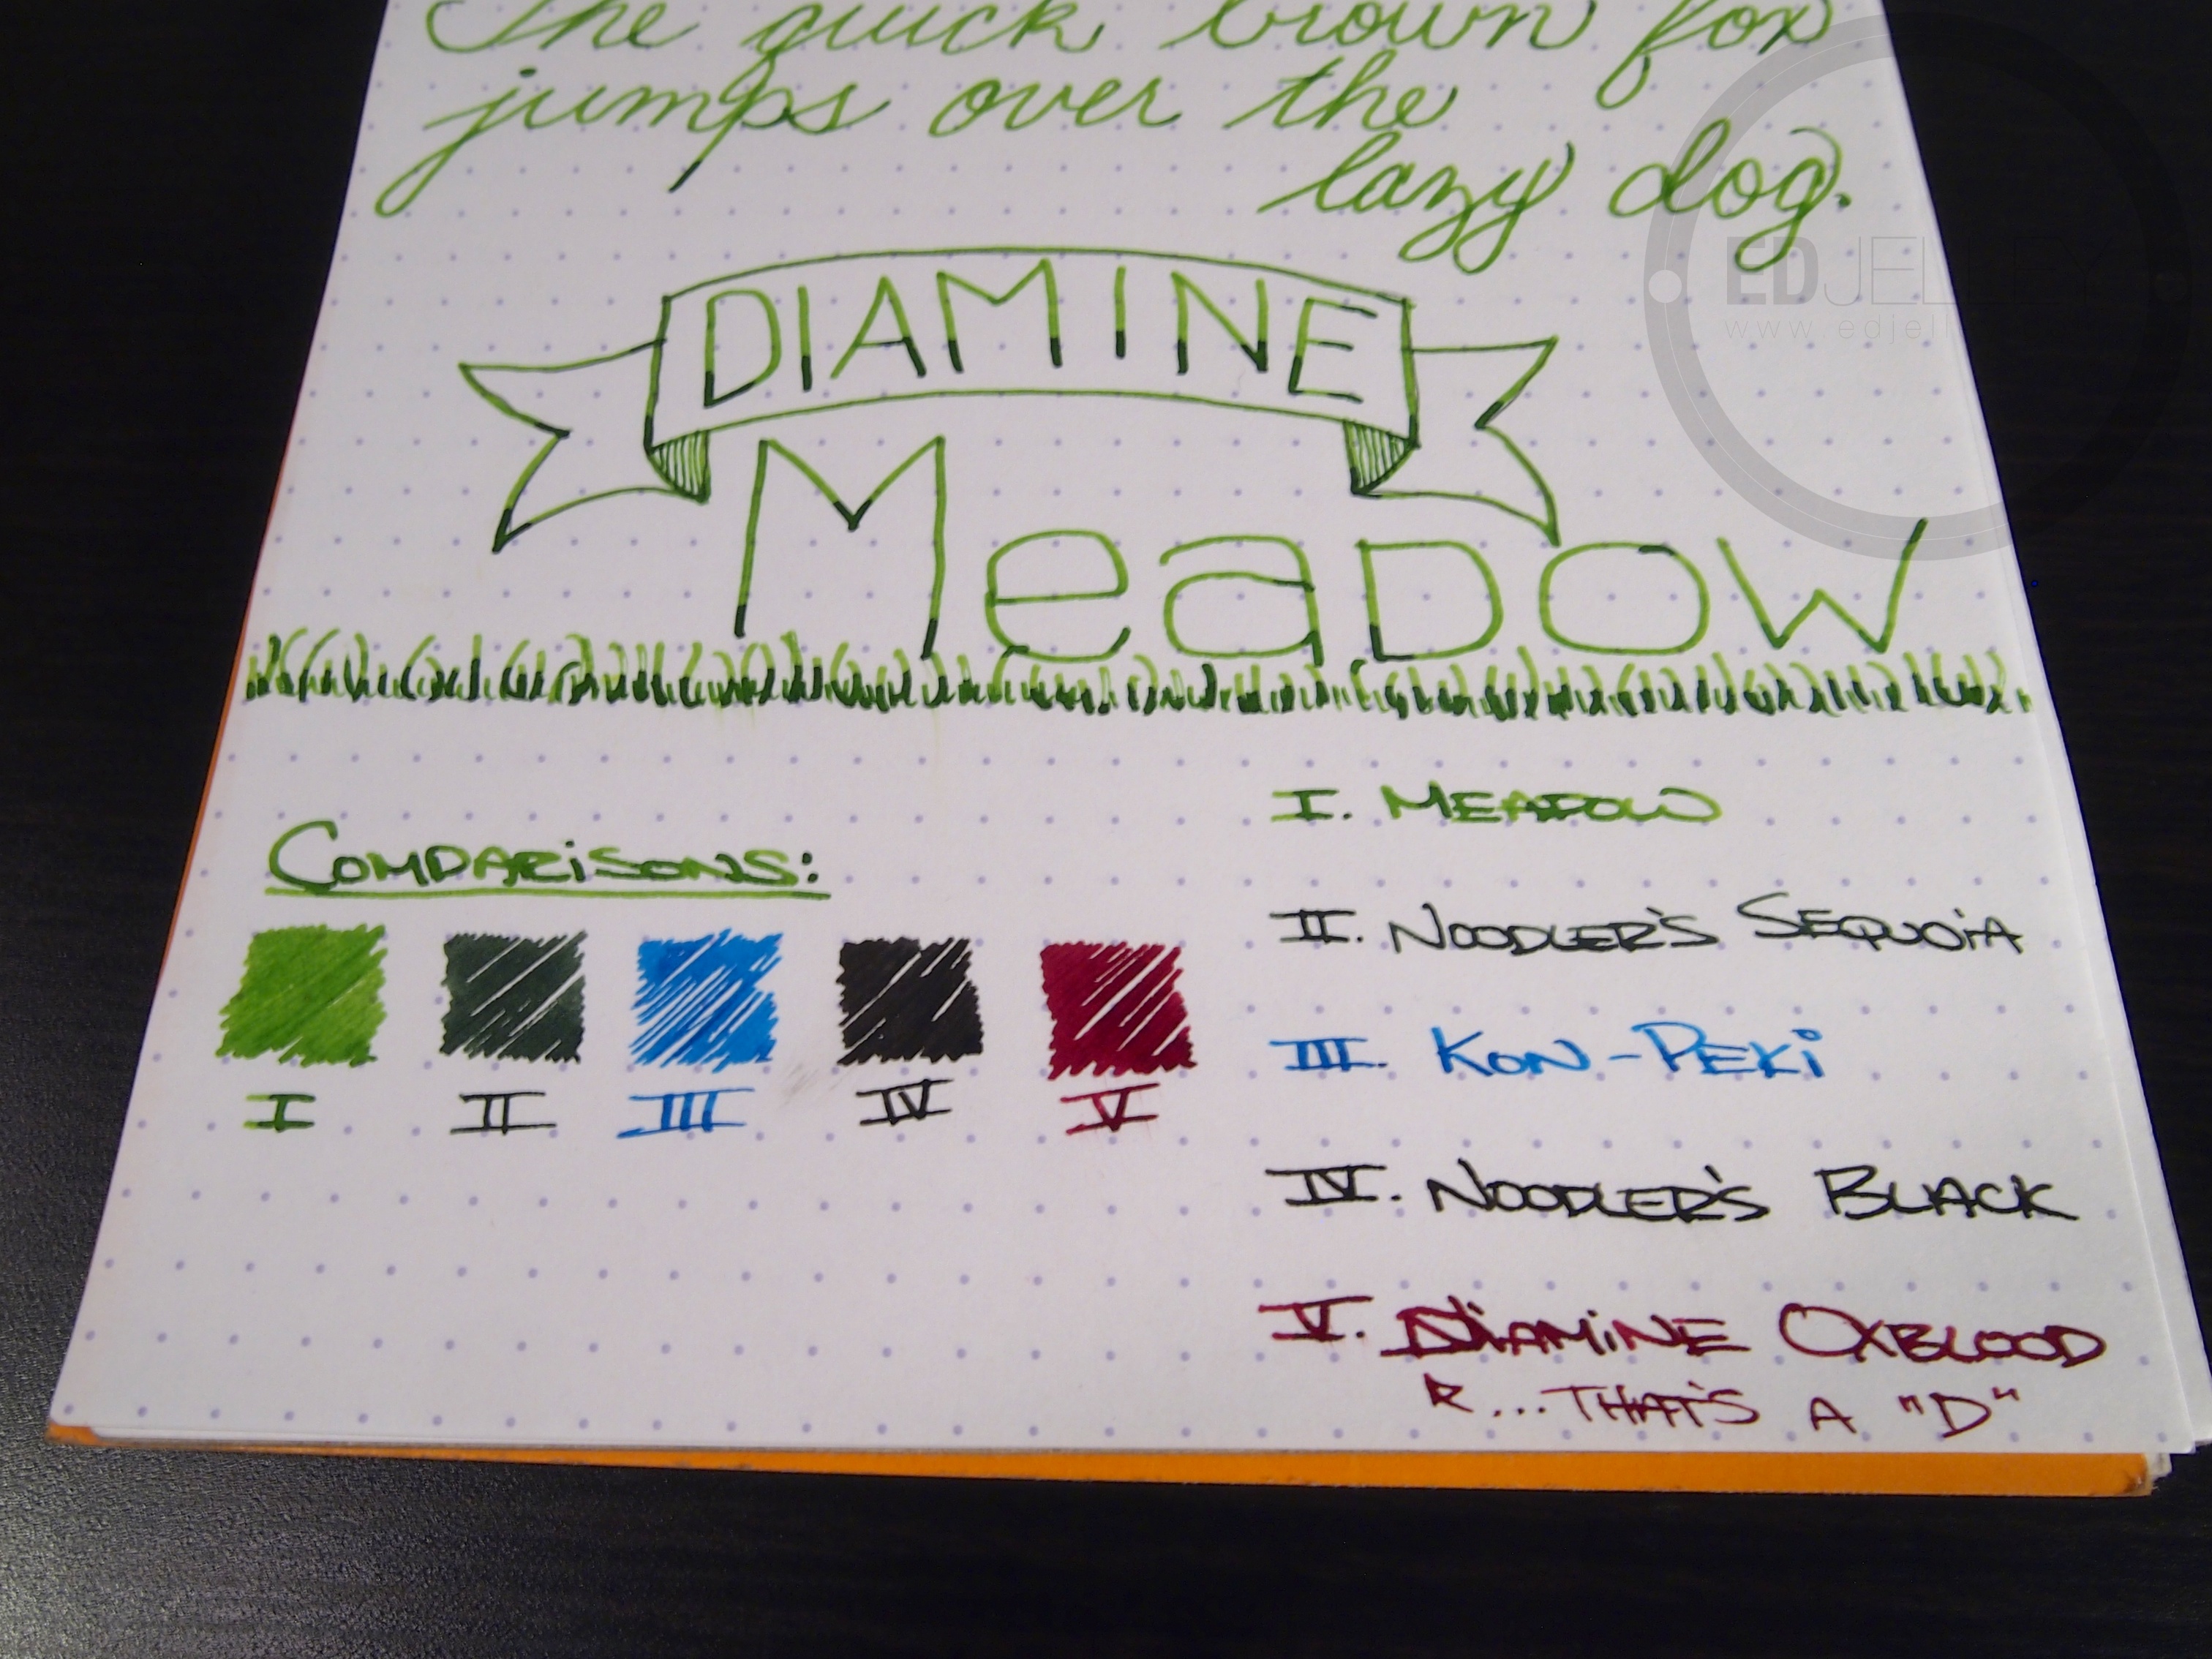 The quick brown fox
jumps over the
lazy dog.
DIAMINE
Meadow
COMPARiSONS:
I
II
III
IV
V
I. MEADOW
II. NOODLER'S SEQUOiA
III. KON-PEKi
IV. NOODLER'S BLACK
V. DiAMiNE OXBLOOD
...THAT'S A "D"
EDJELLEY
www.edjell